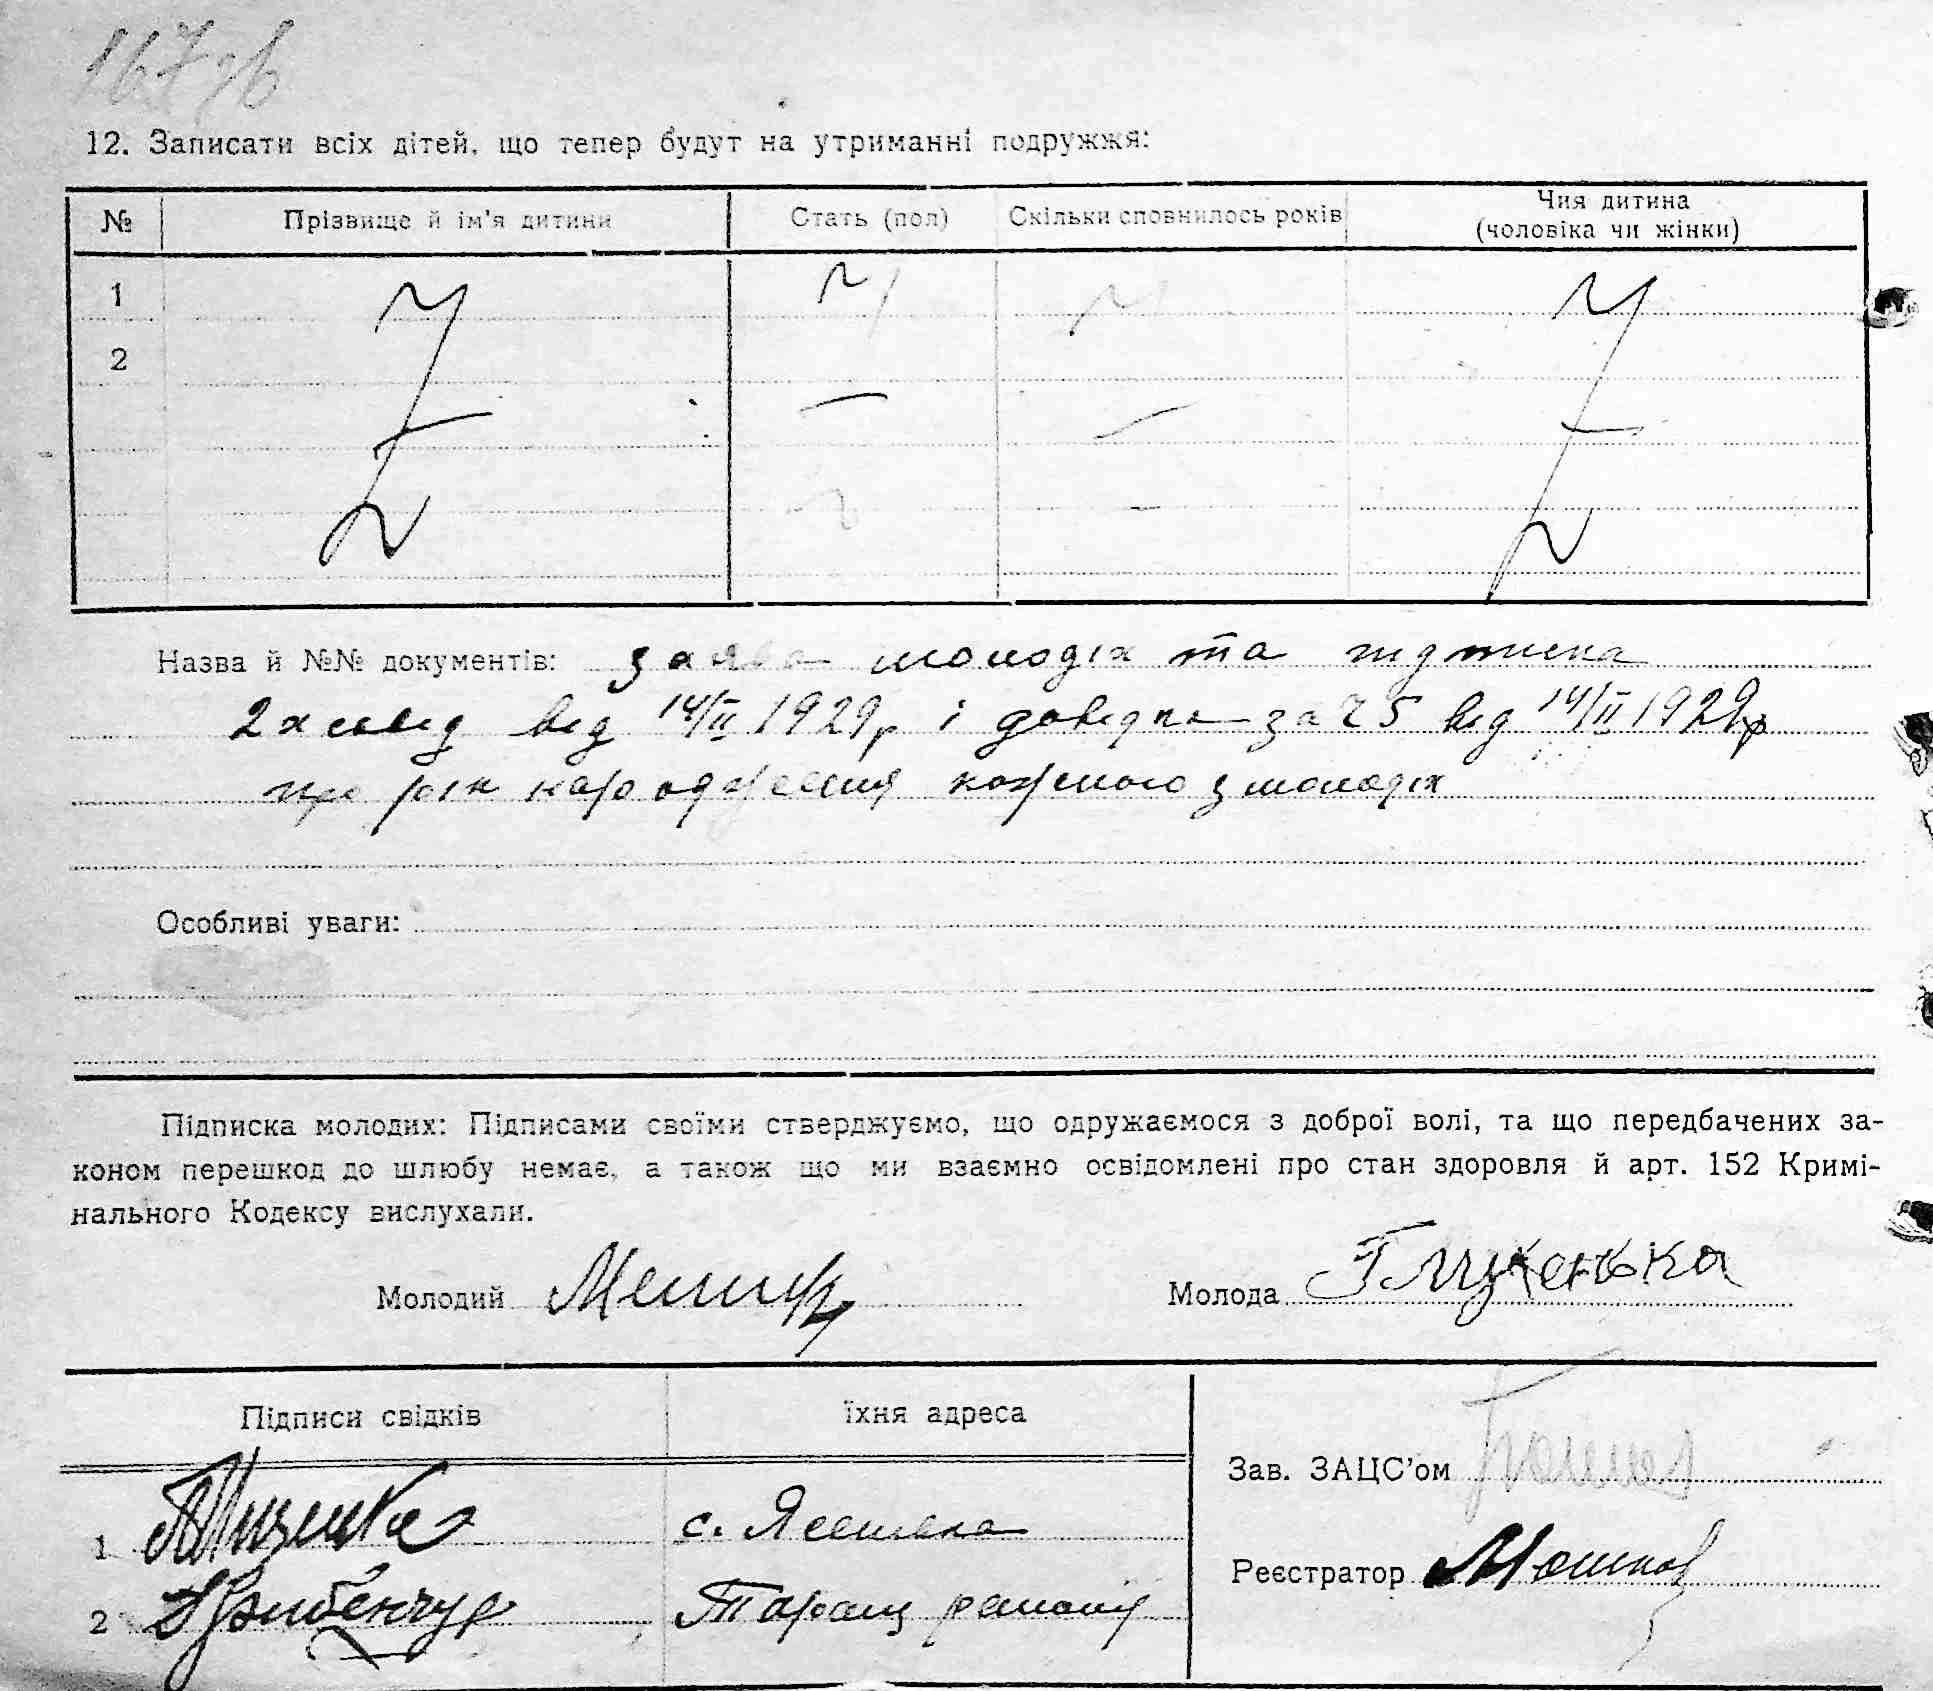 12. Записати всіх дітей, що тепер будут на утриманні подружжя:
№ Прізвище й ім'я дитини Стать (пол) Скільки сповнилось років Чия дитина (чоловіка чи жінки)
1
2
Назва й №№ документів: заява молодіх та підписка
2х свід від 14/II 1929р і довідка за ч 5 від 14/II 1929р
про рік народження кожного з молодіх
Особливі уваги:
Підписка молодих: Підписами своїми стверджуємо, що одружаємося з доброї волі, та що передбачених за-
коном перешкод до шлюбу немає, а також що ми взаємно освідомлені про стан здоровля й арт. 152 Кримі-
нального Кодексу вислухали.
Молодий Молода
Підписи свідків Їхня адреса
Зав. ЗАЦС'ом
1 с.
Реєстратор
2 Таращ району